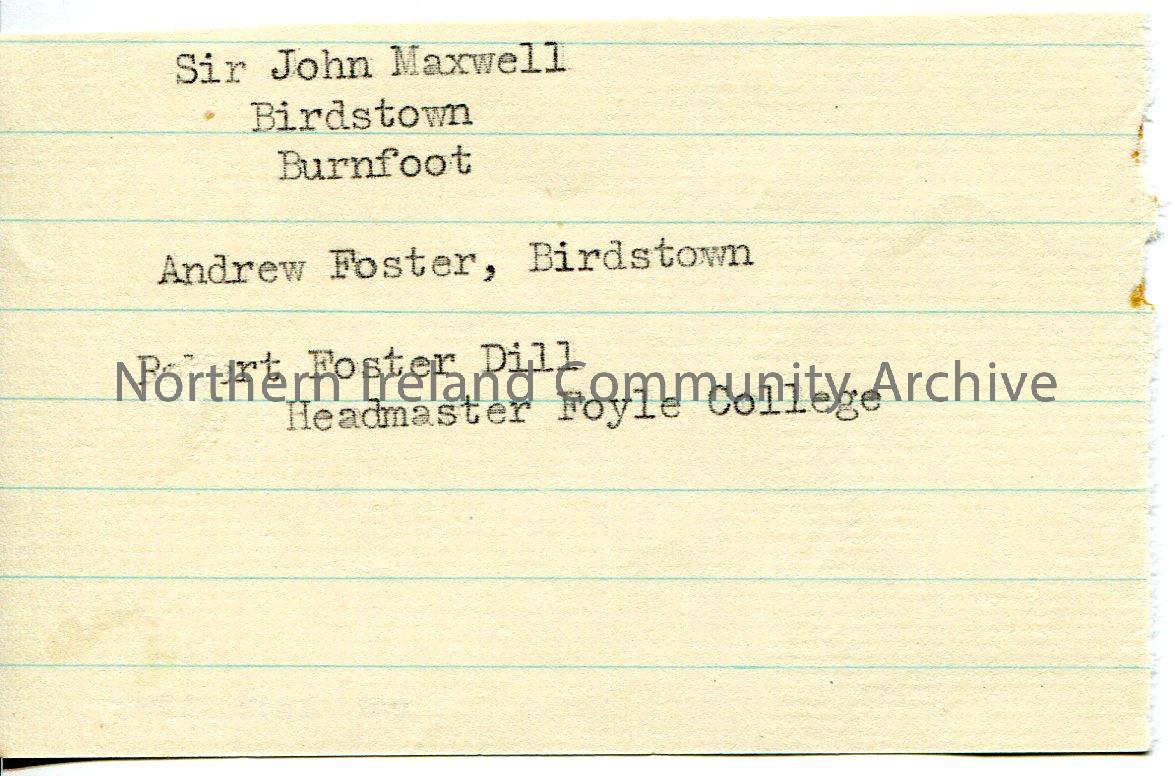 Sir John Maxwell
Birdstown
Burnfoot
Andrew Foster, Birdstown
Foster Dill
Northern Ireland Community Archive
Headmaster Foyle College